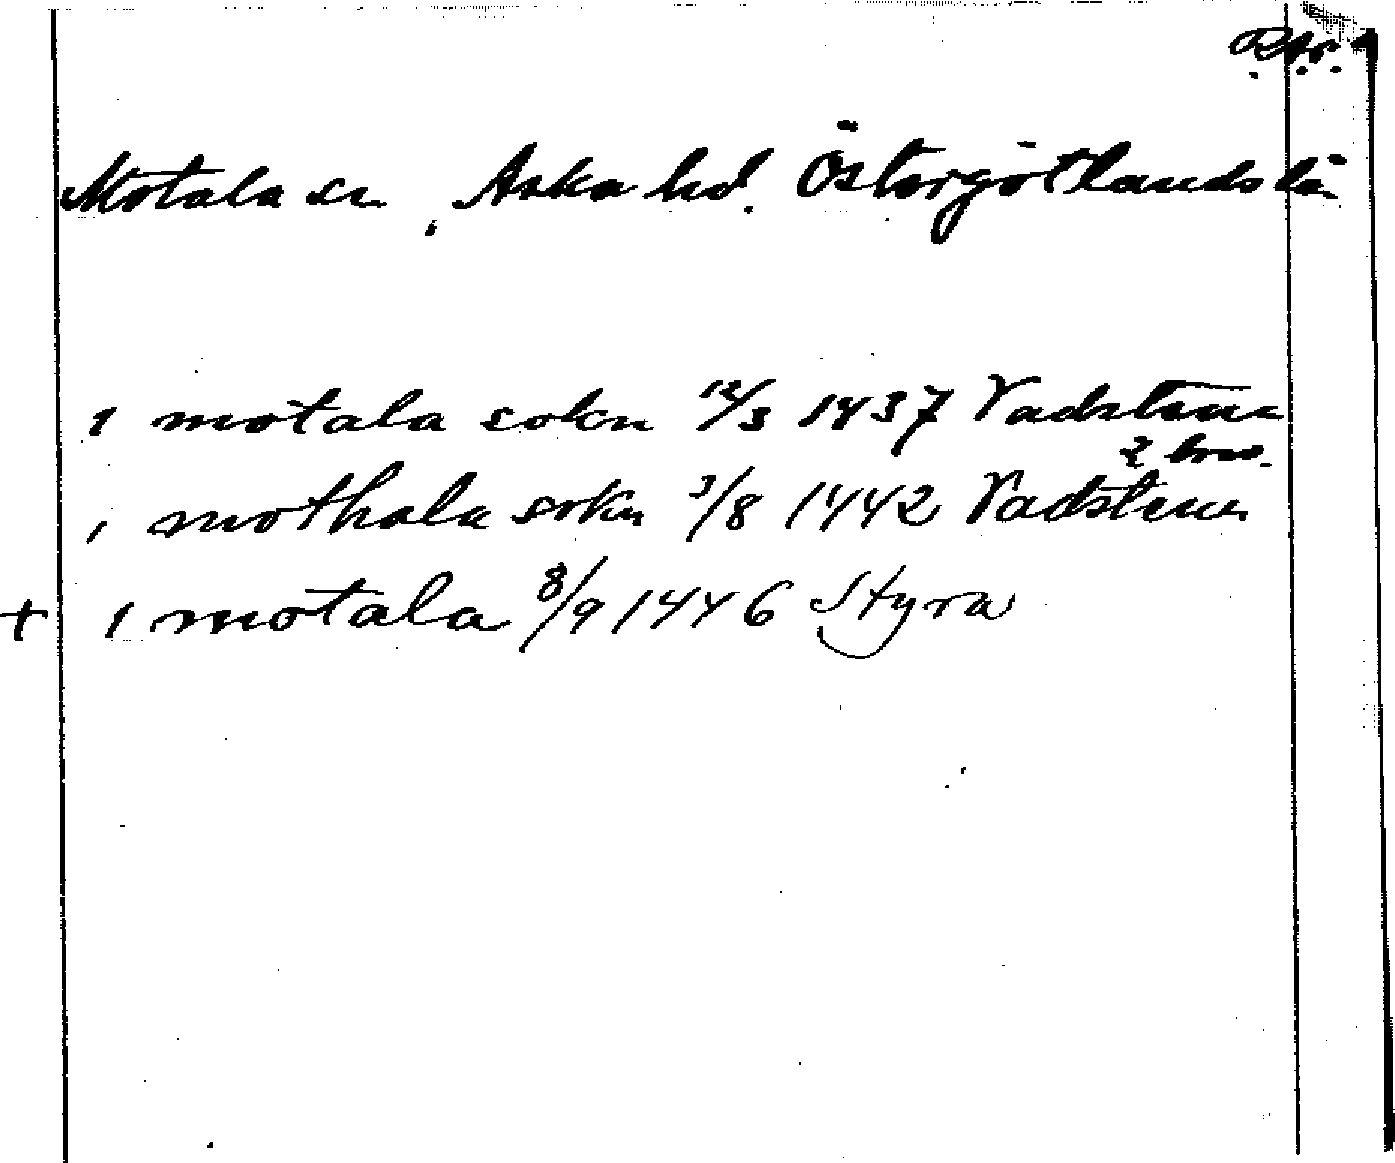 Motala sn, Aska hd. Östergötlands län
1 motala sokn 12/3 1437 Vadstena
2 brev.
1 mothala sokn 3/8 1442 Vadstena
+ 1 motala 8/9 1446 Styra